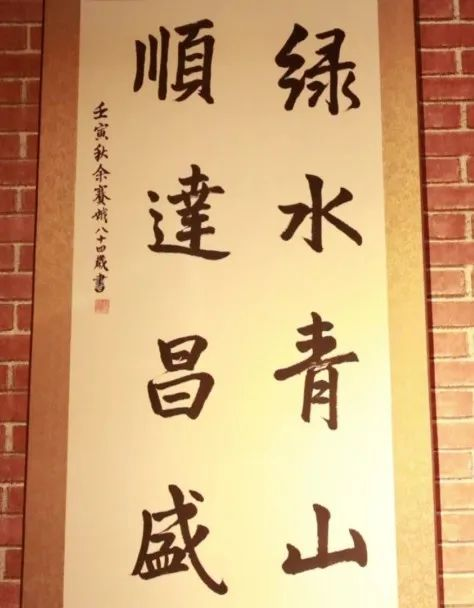 绿水青山
順達昌盛
壬寅秋余賽娥八十四歲書